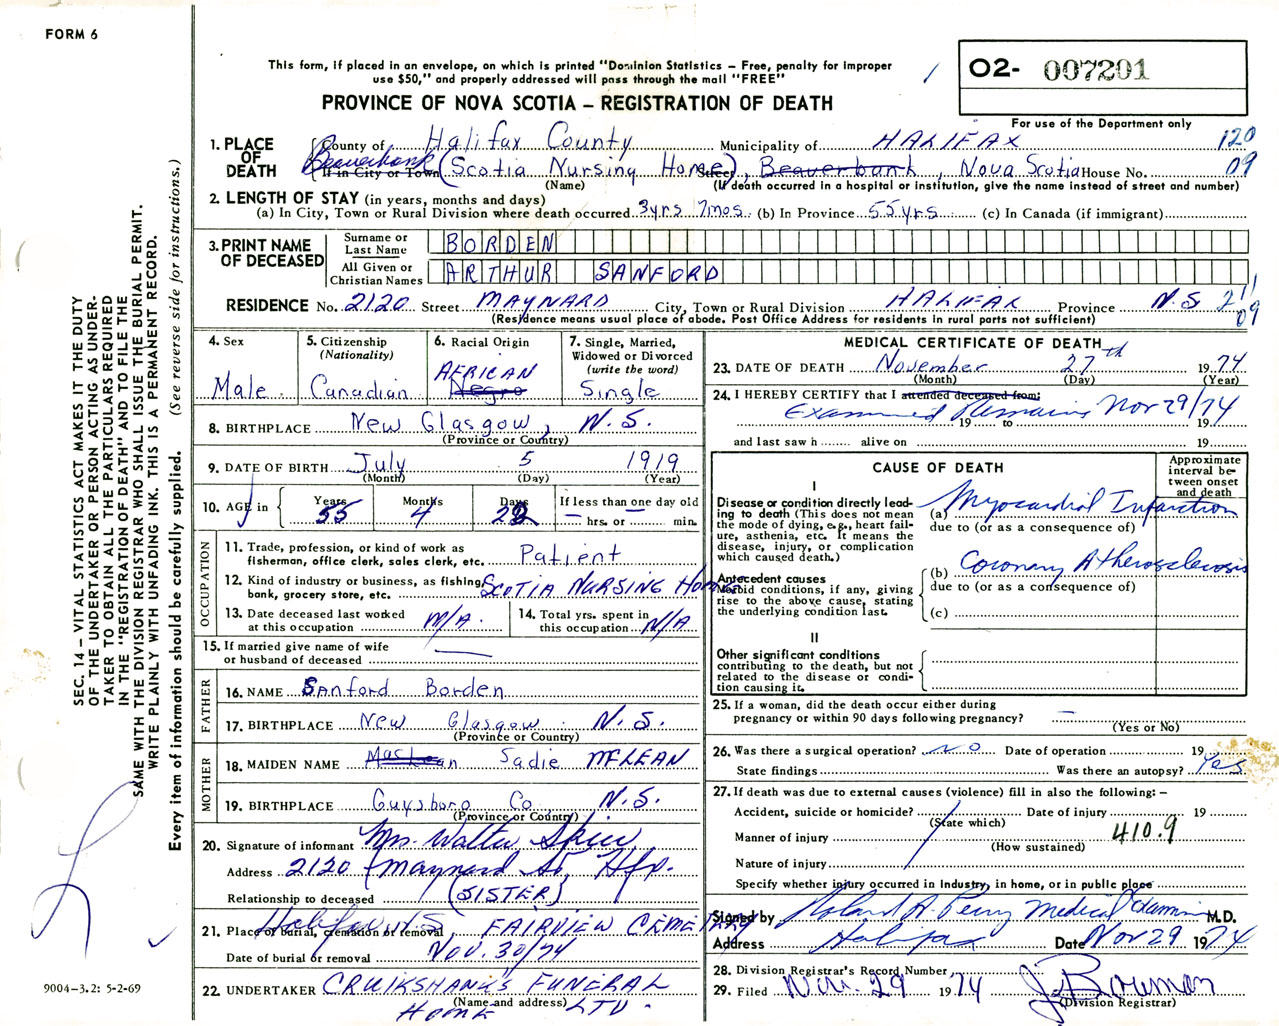 FORM 6
This form, if placed in an envelope, on which is printed "Dominion Statistics – Free, penalty for improper
use $50," and properly addressed will pass through the mail "FREE"
PROVINCE OF NOVA SCOTIA – REGISTRATION OF DEATH
02- 007201
For use of the Department only
1. PLACE OF DEATH
County of Halifax County Municipality of HALIFAX 120
Beaverbank If in City or Town (Scotia Nursing Home) Street, Beaverbank, Nova Scotia House No. 09
(Name) (If death occurred in a hospital or institution, give the name instead of street and number)
2. LENGTH OF STAY (in years, months and days)
(a) In City, Town or Rural Division where death occurred 3yrs 7mos. (b) In Province 55yrs (c) In Canada (if immigrant)
3. PRINT NAME OF DECEASED
Surname or Last Name BORDEN
All Given or Christian Names ARTHUR SANFORD
RESIDENCE No. 2120 Street MAYNARD City, Town or Rural Division HALIFAX Province N.S 211
(Residence means usual place of abode. Post Office Address for residents in rural parts not sufficient) 09
4. Sex
Male
5. Citizenship
(Nationality)
Canadian
6. Racial Origin
AFRICAN
Negro
7. Single, Married,
Widowed or Divorced
(write the word)
Single
8. BIRTHPLACE New Glasgow, N.S.
(Province or Country)
9. DATE OF BIRTH July 5 1919
(Month) (Day) (Year)
10. AGE in
Years 55
Months 4
Days 22
If less than one day old
– hrs. or – min.
OCCUPATION
11. Trade, profession, or kind of work as
fisherman, office clerk, sales clerk, etc. Patient
12. Kind of industry or business, as fishing,
bank, grocery store, etc. SCOTIA NURSING HOME
13. Date deceased last worked
at this occupation N/A.
14. Total yrs. spent in
this occupation N/A
15. If married give name of wife
or husband of deceased —
FATHER
16. NAME Sanford Borden
17. BIRTHPLACE New Glasgow N.S.
(Province or Country)
MOTHER
18. MAIDEN NAME MacLean Sadie MCLEAN
19. BIRTHPLACE Guysboro Co. N.S.
(Province or Country)
20. Signature of informant Mrs. Walter
Address 2120 Maynard St, Hfx.
Relationship to deceased (SISTER)
21. Place of burial, cremation or removal Halifax N.S. FAIRVIEW CEMETARY
Date of burial or removal NOV. 30/74
22. UNDERTAKER CRUIKSHANK'S FUNERAL
(Name and address)
HOME LTD.
MEDICAL CERTIFICATE OF DEATH
23. DATE OF DEATH November 27th 1974
(Month) (Day) (Year)
24. I HEREBY CERTIFY that I attended deceased from:
Examined Remains Nov 29/74
19 to 19
and last saw h alive on 19
CAUSE OF DEATH
Approximate
interval be-
tween onset
and death
I
Disease or condition directly lead-
ing to death (This does not mean
the mode of dying, e.g., heart fail-
ure, asthenia, etc. It means the
disease, injury, or complication
which caused death.)
(a) Myocardial Infarction
due to (or as a consequence of)
Antecedent causes
Morbid conditions, if any, giving
rise to the above cause, stating
the underlying condition last.
(b) Coronary Atherosclerosis
due to (or as a consequence of)
(c)
II
Other significant conditions
contributing to the death, but not
related to the disease or condi-
tion causing it.
25. If a woman, did the death occur either during
pregnancy or within 90 days following pregnancy? –
(Yes or No)
26. Was there a surgical operation? NO Date of operation 19
State findings Was there an autopsy? Yes
27. If death was due to external causes (violence) fill in also the following: –
Accident, suicide or homicide? Date of injury 19
(State which)
Manner of injury 410.9
(How sustained)
Nature of injury
Specify whether injury occurred in Industry, in home, or in public place
Signed by Roland A. Perry Medical Examiner M.D.
Address Halifax Date Nov 29 1974
28. Division Registrar's Record Number
29. Filed Nov. 29 1974 J. Bowman
(Division Registrar)
SEC. 14 – VITAL STATISTICS ACT MAKES IT THE DUTY
OF THE UNDERTAKER OR PERSON ACTING AS UNDER-
TAKER TO OBTAIN ALL THE PARTICULARS REQUIRED
IN THE "REGISTRATION OF DEATH" AND TO FILE THE
SAME WITH THE DIVISION REGISTRAR WHO SHALL ISSUE THE BURIAL PERMIT.
WRITE PLAINLY WITH UNFADING INK. THIS IS A PERMANENT RECORD.
Every item of information should be carefully supplied. (See reverse side for instructions.)
9004-3.2: 5-2-69